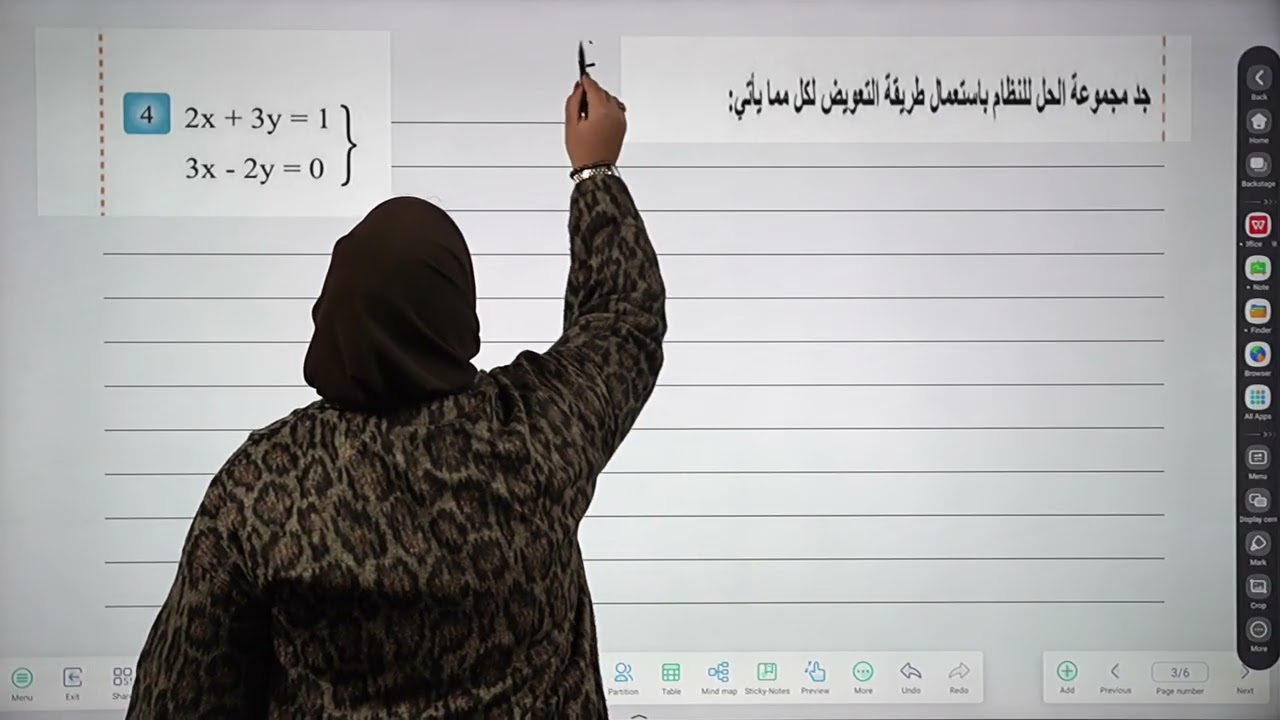 جد مجموعة الحل للنظام باستعمال طريقة التعويض لكل مما يأتي:
4 2x + 3y = 1
3x - 2y = 0
Back
Home
Backstage
Note
Finder
Browser
All Apps
Menu
Mark
Crop
More
Menu Exit Partition Table Mind map Sticky-Notes Preview More Undo Redo Add Previous 3/6 Page number Next